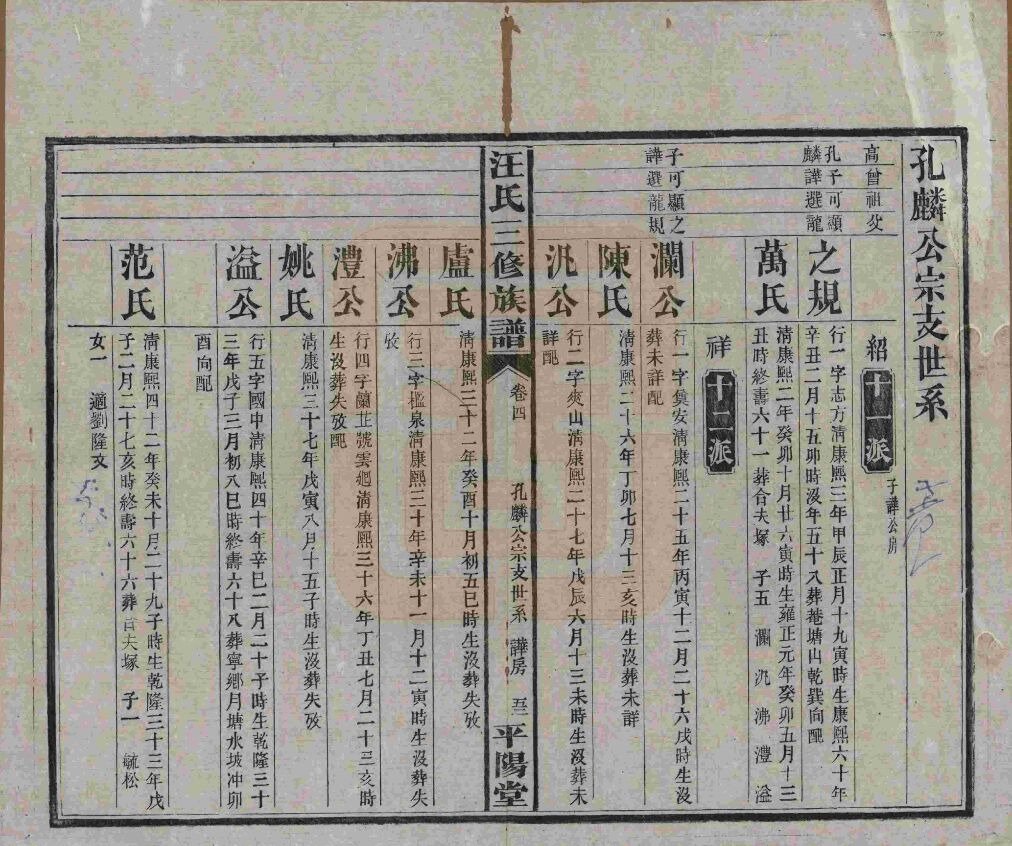 孔麟公宗支世系
高曾祖父
紹 十一派 子譁公房
孔子可顯
麟譁選龍
之規
行一字志方清康熙三年甲辰正月十九寅時生康熙六十年
辛丑二月十五卯時沒年五十八葬菴塘山乾巽向配
萬氏
清康熙二年癸卯十月廿六寅時生雍正元年癸卯五月十三
丑時終壽六十一葬合夫塚 子五 瀾 汎 沸 澧 溢
祥 十二派
子可顯之
譁選龍規
瀾公
行一字奠安清康熙二十五年丙寅十二月二十六戌時生沒
葬未詳配
陳氏
清康熙二十六年丁卯七月十三亥時生沒葬未詳
汎公
行二字爽山清康熙二十七年戊辰六月十三未時生沒葬未
詳配
汪氏三修族譜 卷四 孔麟公宗支世系 譁房 五三 平陽堂
盧氏
清康熙三十二年癸酉十月初五巳時生沒葬失攷
沸公
行三字檻泉清康熙三十年辛未十一月十二寅時生沒葬失
攷
澧公
行四字蘭芷號雲廻清康熙三十六年丁丑七月二十三亥時
生沒葬失攷配
姚氏
清康熙三十七年戊寅八月十五子時生沒葬失攷
溢公
行五字國中清康熙四十年辛巳二月二十子時生乾隆三十
三年戊子三月初八巳時終壽六十八葬寧鄉月塘水坡冲卯
酉向配
范氏
清康熙四十二年癸未十月二十九子時生乾隆三十三年戊
子二月二十七亥時終壽六十六葬合夫塚 子一 毓松
女一 適劉隆文